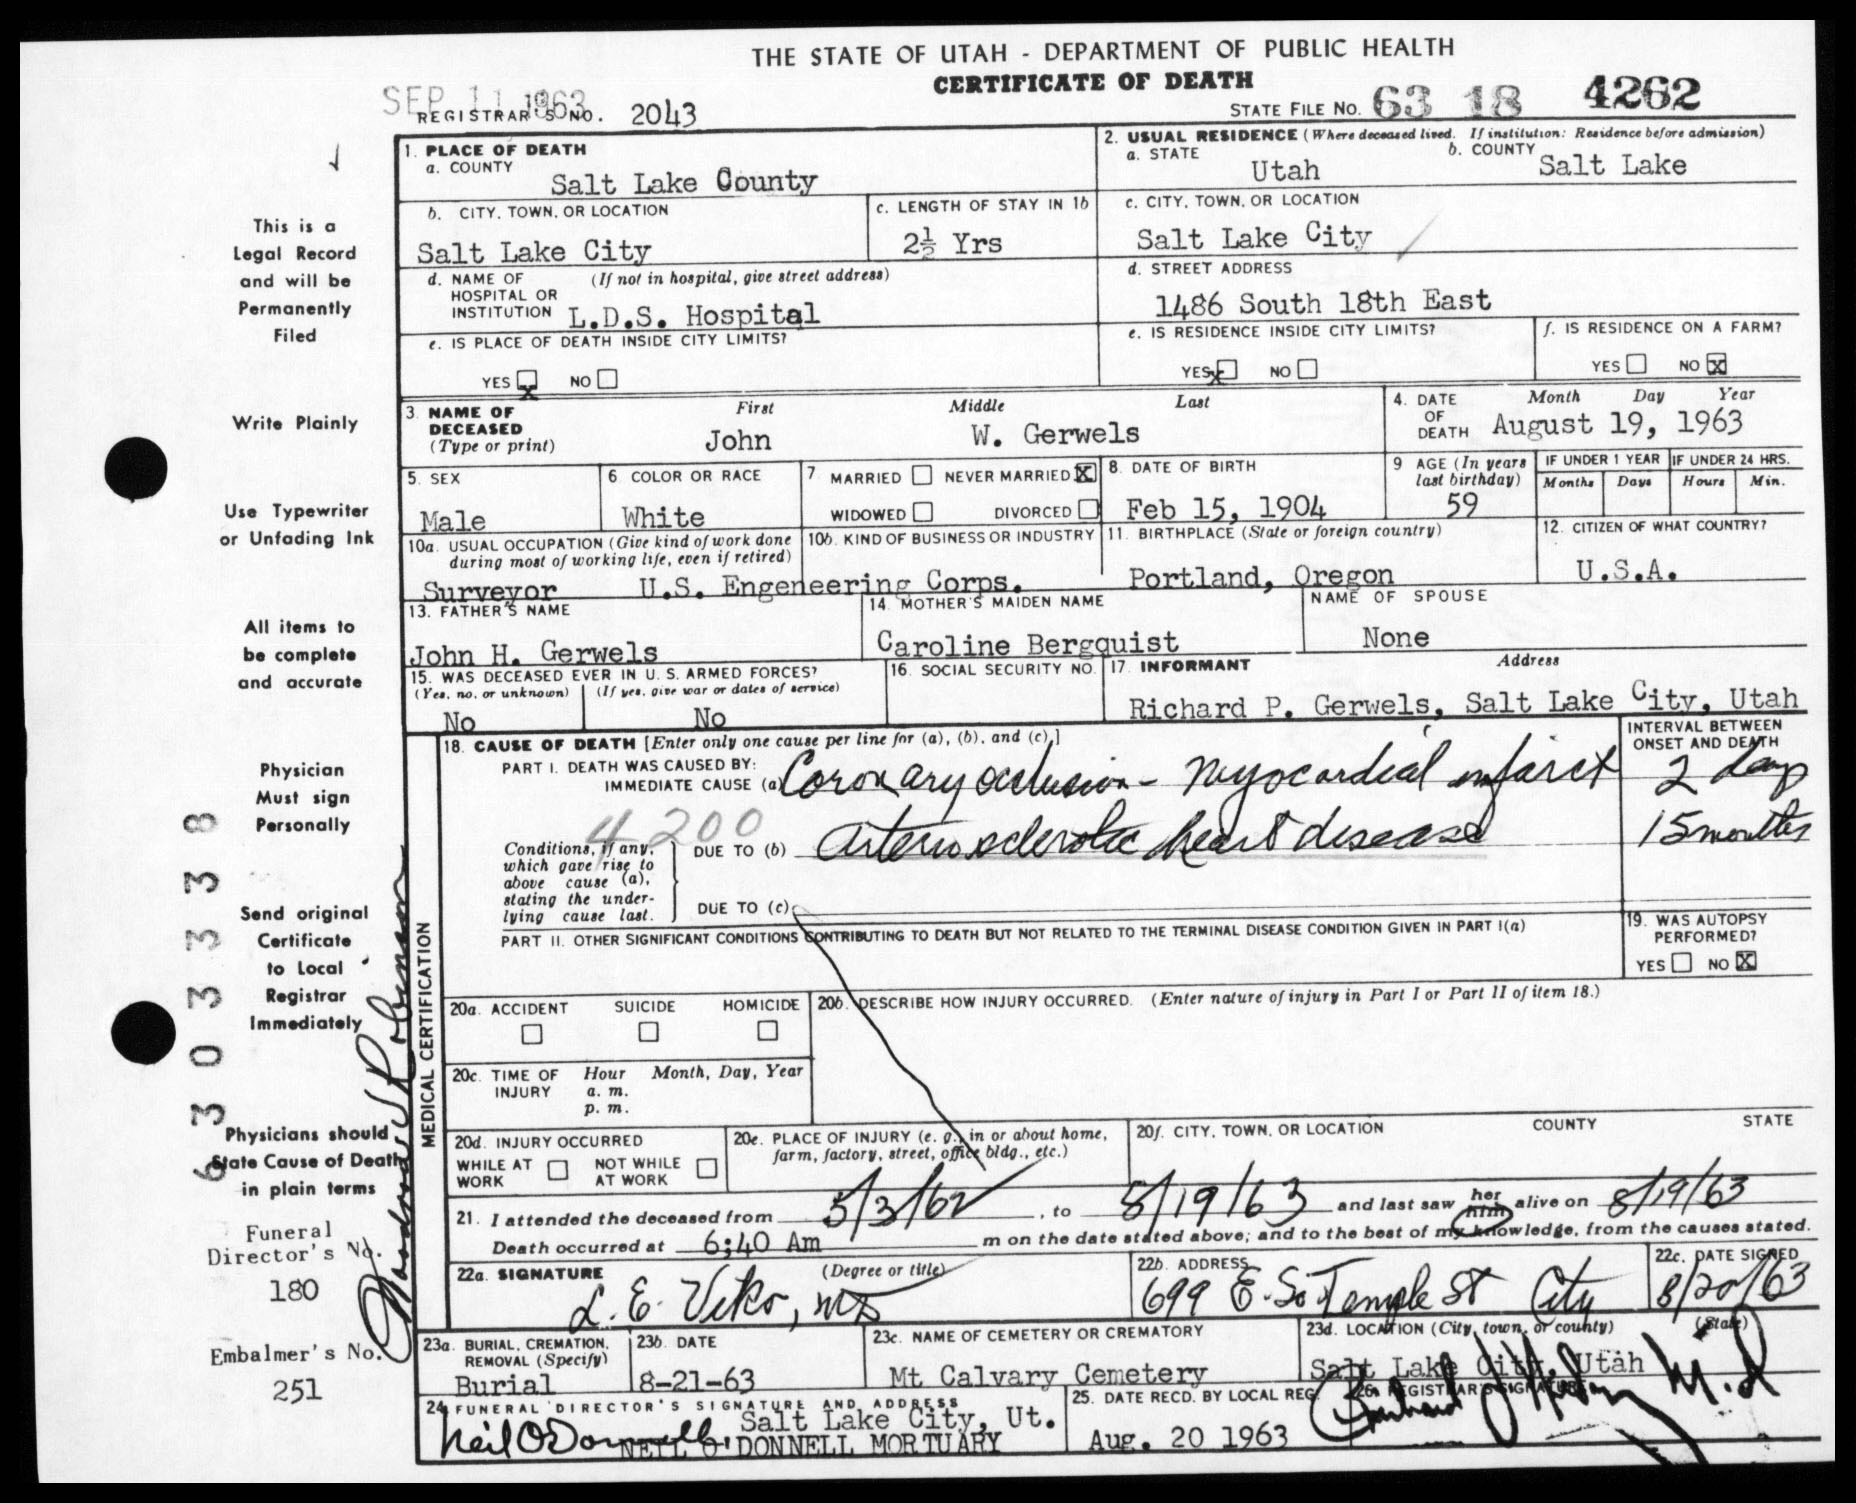 THE STATE OF UTAH - DEPARTMENT OF PUBLIC HEALTH
CERTIFICATE OF DEATH
SEP 11 1963
REGISTRAR'S NO. 2043
STATE FILE NO. 63 18 4262
1. PLACE OF DEATH
a. COUNTY
Salt Lake County
2. USUAL RESIDENCE (Where deceased lived. If institution: Residence before admission)
a. STATE
Utah
b. COUNTY
Salt Lake
b. CITY, TOWN, OR LOCATION
Salt Lake City
c. LENGTH OF STAY IN 1b
2½ Yrs
c. CITY, TOWN, OR LOCATION
Salt Lake City
d. NAME OF HOSPITAL OR INSTITUTION
(If not in hospital, give street address)
L.D.S. Hospital
d. STREET ADDRESS
1486 South 18th East
e. IS PLACE OF DEATH INSIDE CITY LIMITS?
YES X NO
e. IS RESIDENCE INSIDE CITY LIMITS?
YES X NO
f. IS RESIDENCE ON A FARM?
YES NO X
3. NAME OF DECEASED
(Type or print)
First Middle Last
John W. Gerwels
4. DATE OF DEATH
Month Day Year
August 19, 1963
5. SEX
Male
6 COLOR OR RACE
White
7 MARRIED NEVER MARRIED X
WIDOWED DIVORCED
8. DATE OF BIRTH
Feb 15, 1904
9 AGE (In years last birthday)
59
IF UNDER 1 YEAR
Months Days
IF UNDER 24 HRS.
Hours Min.
10a. USUAL OCCUPATION (Give kind of work done during most of working life, even if retired)
Surveyor
10b. KIND OF BUSINESS OR INDUSTRY
U.S. Engeneering Corps.
11. BIRTHPLACE (State or foreign country)
Portland, Oregon
12. CITIZEN OF WHAT COUNTRY?
U.S.A.
13. FATHER'S NAME
John H. Gerwels
14. MOTHER'S MAIDEN NAME
Caroline Bergquist
NAME OF SPOUSE
None
15. WAS DECEASED EVER IN U. S. ARMED FORCES?
(Yes, no, or unknown) (If yes, give war or dates of service)
No No
16. SOCIAL SECURITY NO.
17. INFORMANT Address
Richard P. Gerwels, Salt Lake City, Utah
MEDICAL CERTIFICATION
18. CAUSE OF DEATH [Enter only one cause per line for (a), (b), and (c).]
PART I. DEATH WAS CAUSED BY:
IMMEDIATE CAUSE (a) Coronary occlusion - Myocardial infarct
INTERVAL BETWEEN ONSET AND DEATH
2 days
4200
Conditions, if any, which gave rise to above cause (a), stating the underlying cause last.
DUE TO (b) Arteriosclerotic heart disease
15 months
DUE TO (c)
PART II. OTHER SIGNIFICANT CONDITIONS CONTRIBUTING TO DEATH BUT NOT RELATED TO THE TERMINAL DISEASE CONDITION GIVEN IN PART I(a)
19. WAS AUTOPSY PERFORMED?
YES NO X
20a. ACCIDENT SUICIDE HOMICIDE
20b. DESCRIBE HOW INJURY OCCURRED. (Enter nature of injury in Part I or Part II of item 18.)
20c. TIME OF INJURY
Hour Month, Day, Year
a. m.
p. m.
20d. INJURY OCCURRED
WHILE AT WORK NOT WHILE AT WORK
20e. PLACE OF INJURY (e. g., in or about home, farm, factory, street, office bldg., etc.)
20f. CITY, TOWN, OR LOCATION COUNTY STATE
21. I attended the deceased from 5/3/62, to 8/19/63 and last saw her him alive on 8/19/63
Death occurred at 6:40 Am m on the date stated above; and to the best of my knowledge, from the causes stated.
22a. SIGNATURE (Degree or title)
L. E. Viko, MD
22b. ADDRESS
699 E. So Temple St City
22c. DATE SIGNED
8/20/63
23a. BURIAL, CREMATION, REMOVAL (Specify)
Burial
23b. DATE
8-21-63
23c. NAME OF CEMETERY OR CREMATORY
Mt Calvary Cemetery
23d. LOCATION (City, town, or county) (State)
Salt Lake City, Utah
24. FUNERAL DIRECTOR'S SIGNATURE AND ADDRESS
Salt Lake City, Ut.
Neil O'Donnell
NEIL O'DONNELL MORTUARY
25. DATE RECD. BY LOCAL REG.
Aug. 20 1963
26. REGISTRAR'S SIGNATURE
M.D
This is a
Legal Record
and will be
Permanently
Filed
Write Plainly
Use Typewriter
or Unfading Ink
All items to
be complete
and accurate
Physician
Must sign
Personally
Send original
Certificate
to Local
Registrar
Immediately
Physicians should
State Cause of Death
in plain terms
Funeral
Director's No.
180
Embalmer's No.
251
6303338
Robinson